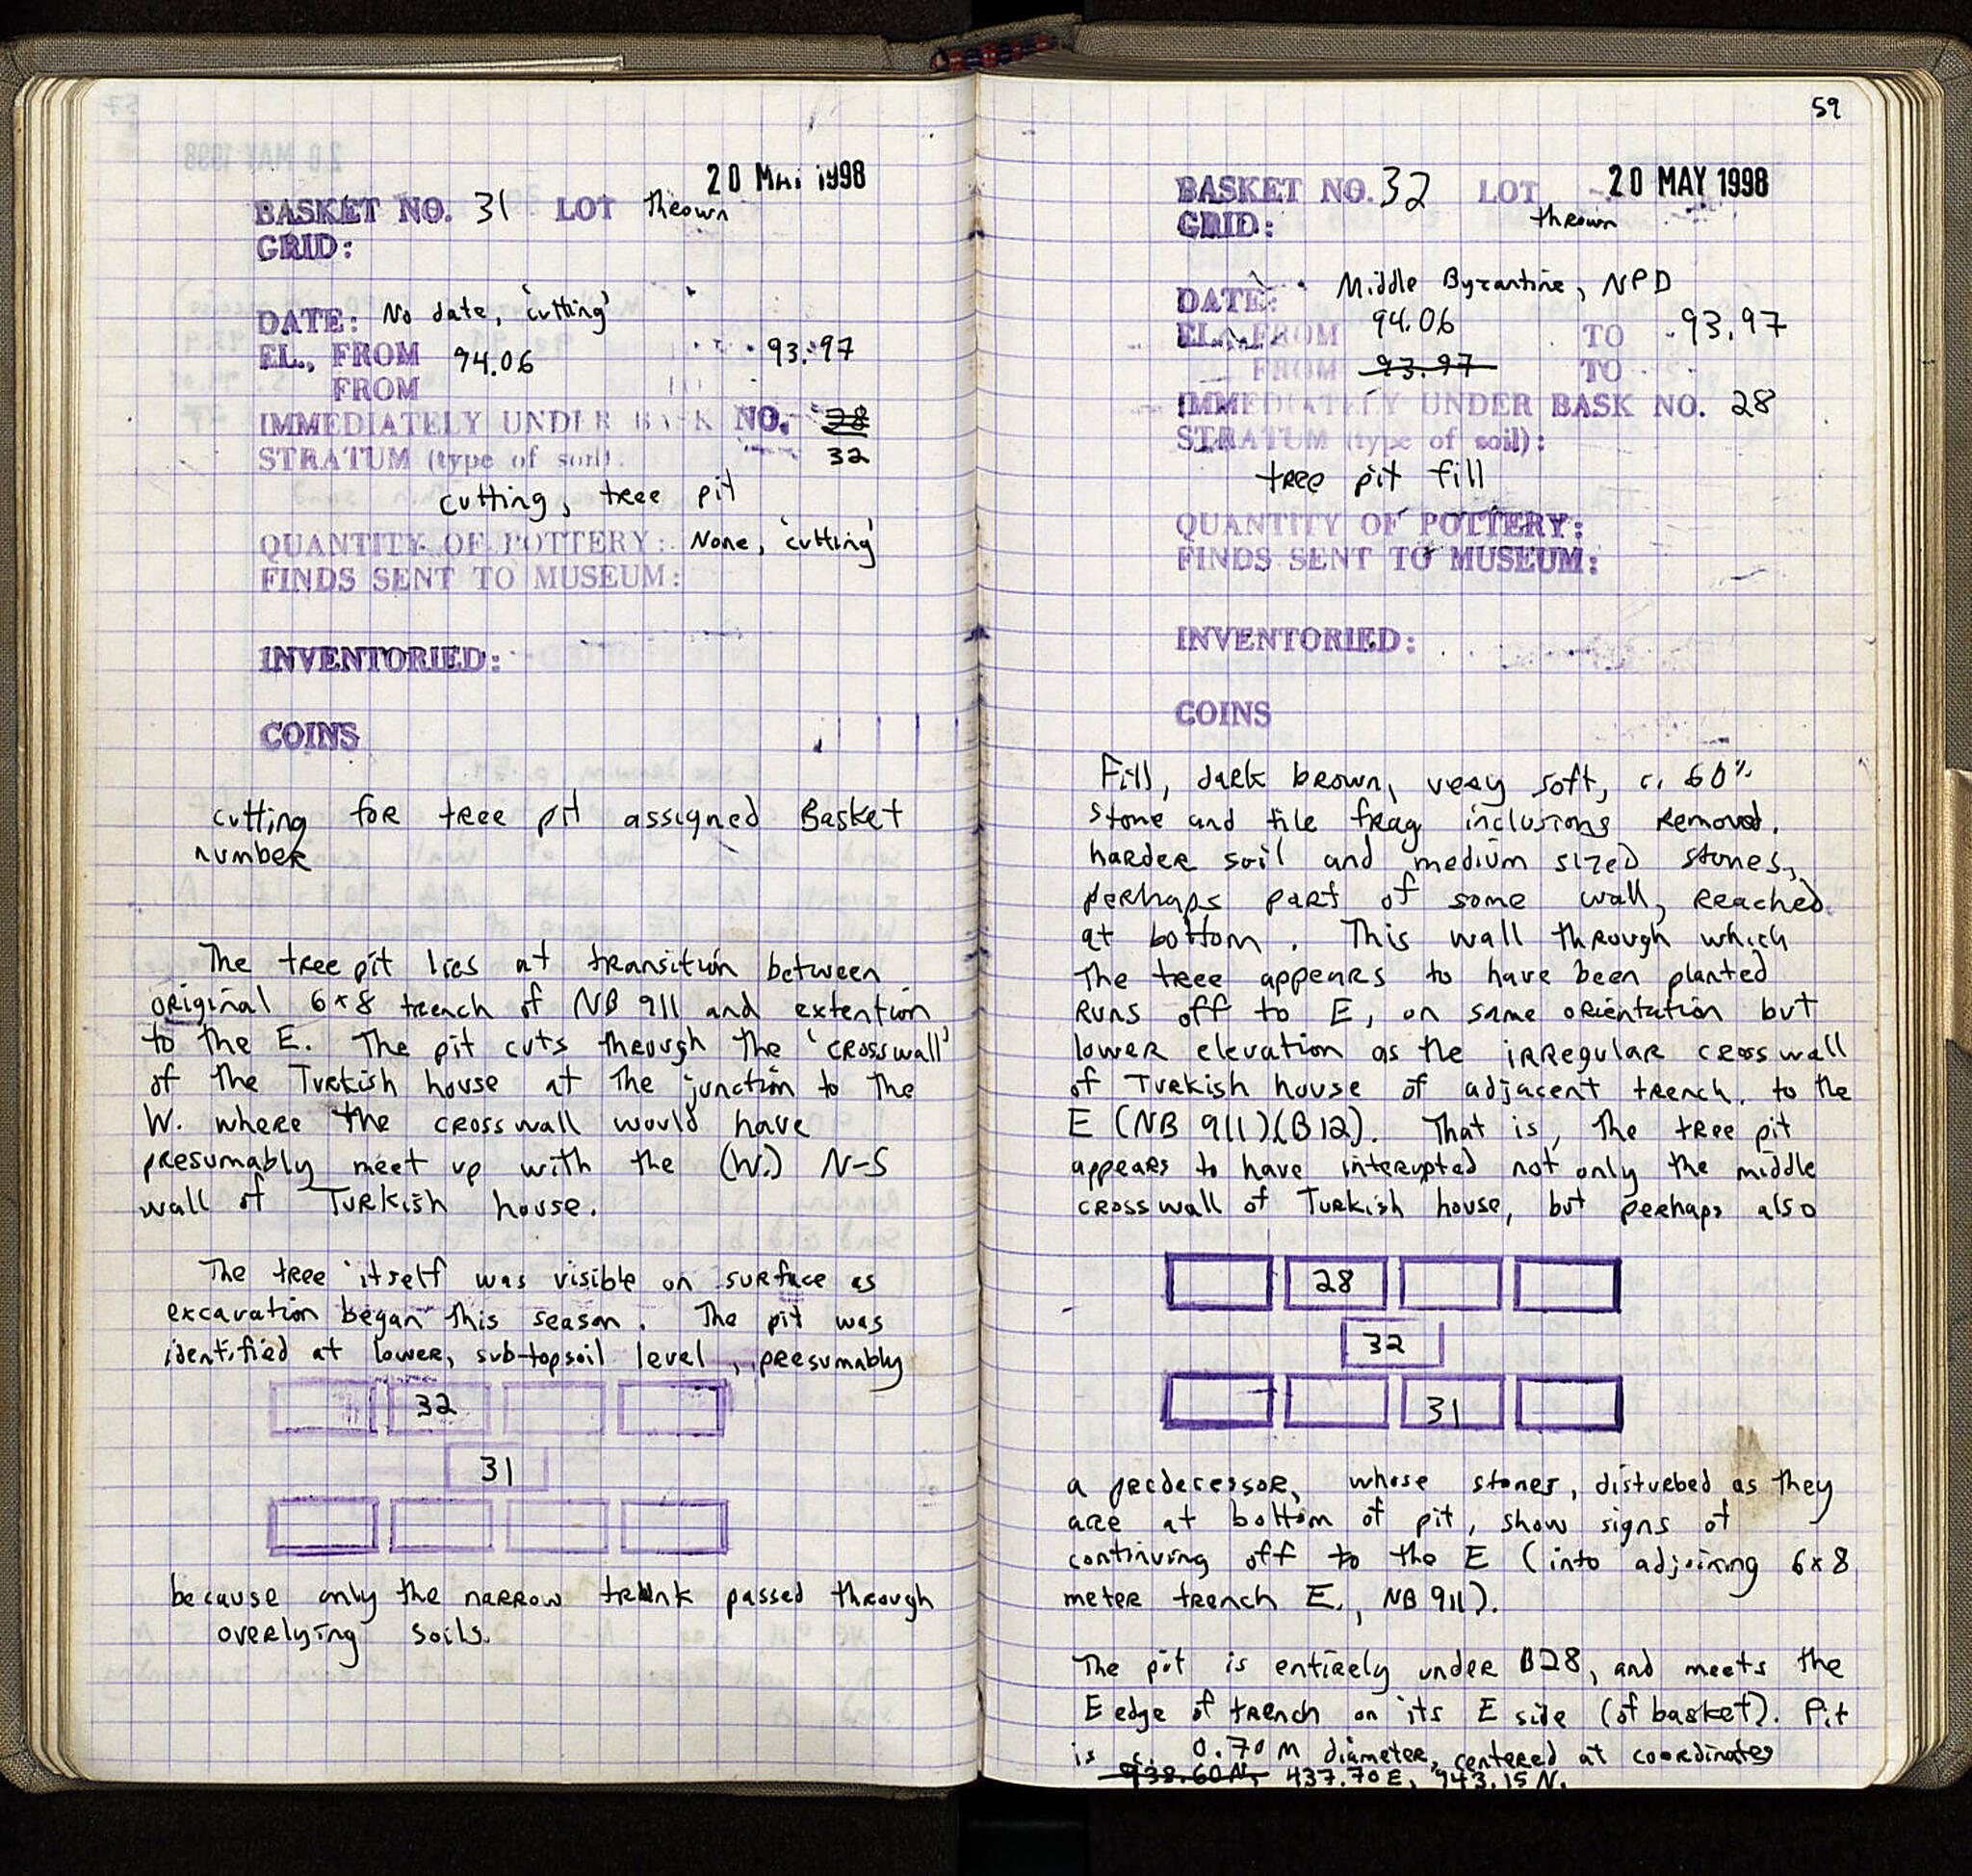 20 MAY 1998
BASKET NO. 31 LOT thrown
GRID:
DATE: No date, 'cutting'
EL., FROM 94.06 93.97
FROM
IMMEDIATELY UNDER BASK NO. 28
STRATUM (type of soil): 32
cutting, tree pit
QUANTITY OF POTTERY: None, 'cutting'
FINDS SENT TO MUSEUM:
INVENTORIED:
COINS
cutting for tree pit assigned Basket
number
The tree pit lies at transition between
original 6x8 trench of NB 911 and extention
to the E. The pit cuts through the 'crosswall'
of the Turkish house at the junction to the
W. where the crosswall would have
presumably meet up with the (W.) N-S
wall of Turkish house.
The tree itself was visible on surface as
excavation began this season. The pit was
identified at lower, sub-topsoil level, presumably
32
31
because only the narrow trunk passed through
overlying soils.
59
20 MAY 1998
BASKET NO. 32 LOT
thrown
GRID:
Middle Byzantine, NPD
DATE:
EL., FROM 94.06 TO 93.97
FROM 93.97 TO
IMMEDIATELY UNDER BASK NO. 28
STRATUM (type of soil):
tree pit fill
QUANTITY OF POTTERY:
FINDS SENT TO MUSEUM:
INVENTORIED:
COINS
Fill, dark brown, very soft, c. 60%
stone and tile frag inclusions removed.
harder soil and medium sized stones,
perhaps part of some wall, reached
at bottom. This wall through which
the tree appears to have been planted
runs off to E, on same orientation but
lower elevation as the irregular cross wall
of Turkish house of adjacent trench. to the
E (NB 911)(B12). That is, the tree pit
appears to have interupted not only the middle
cross wall of Turkish house, but perhaps also
28
32
31
a predecessor, whose stones, disturbed as they
are at bottom of pit, show signs of
continuing off to the E (into adjoining 6x8
meter trench E., NB 911).
The pit is entirely under B28, and meets the
E edge of trench on its E side (of basket). Pit
is c. 0.70 m diameter, centered at coordinates
938.60 N, 437.70 E, 943.15 N.